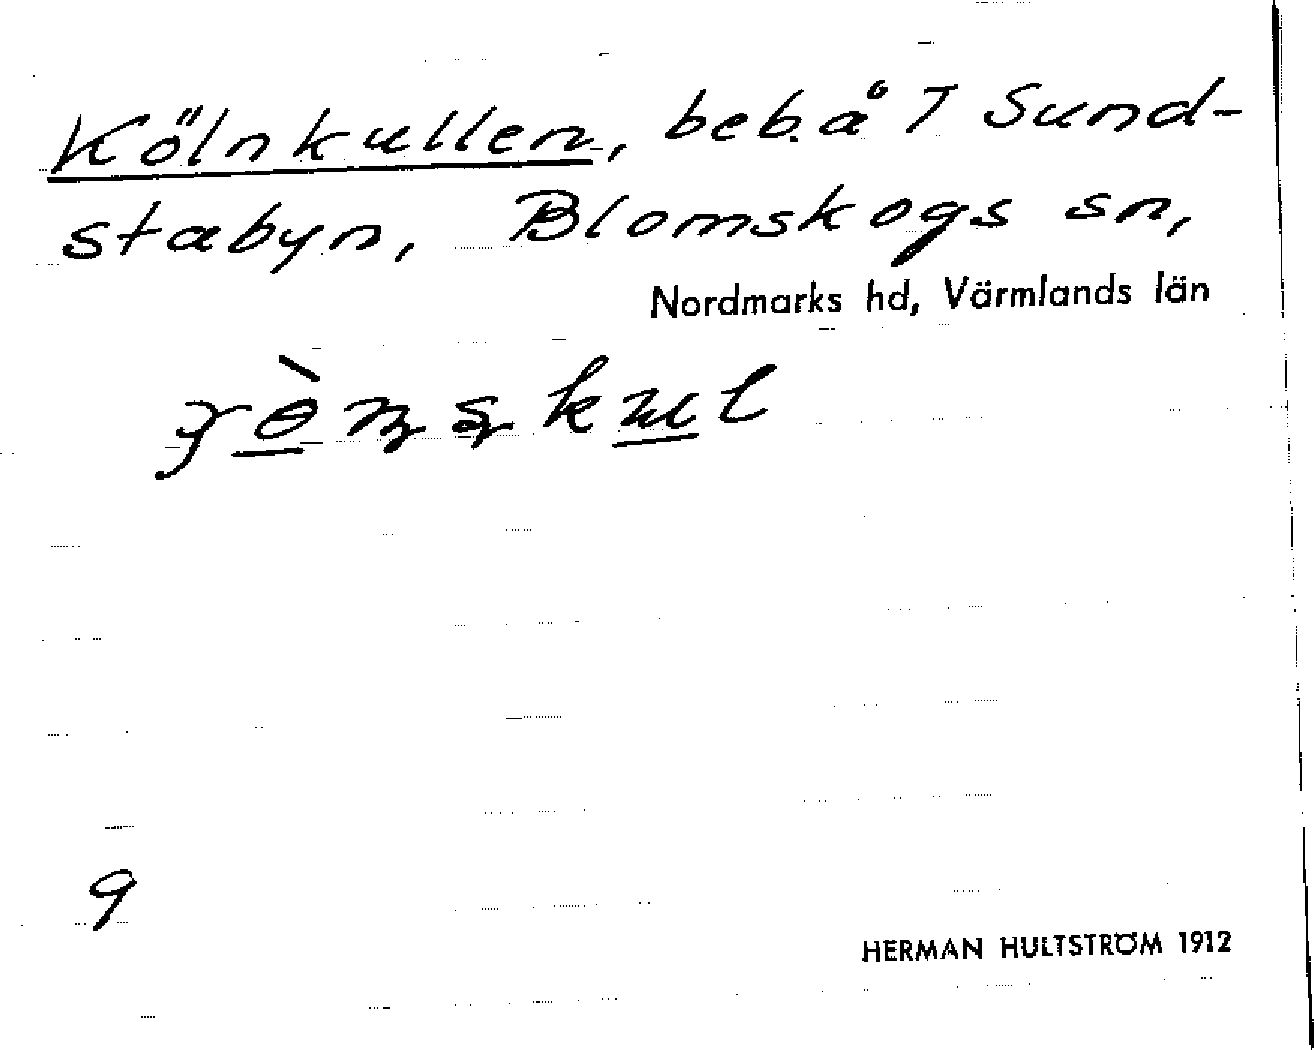 Kölnkullen, beb. å 7 Sund-
stabyn, Blomskogs sn,
Nordmarks hd, Värmlands län
9
HERMAN HULTSTRÖM 1912